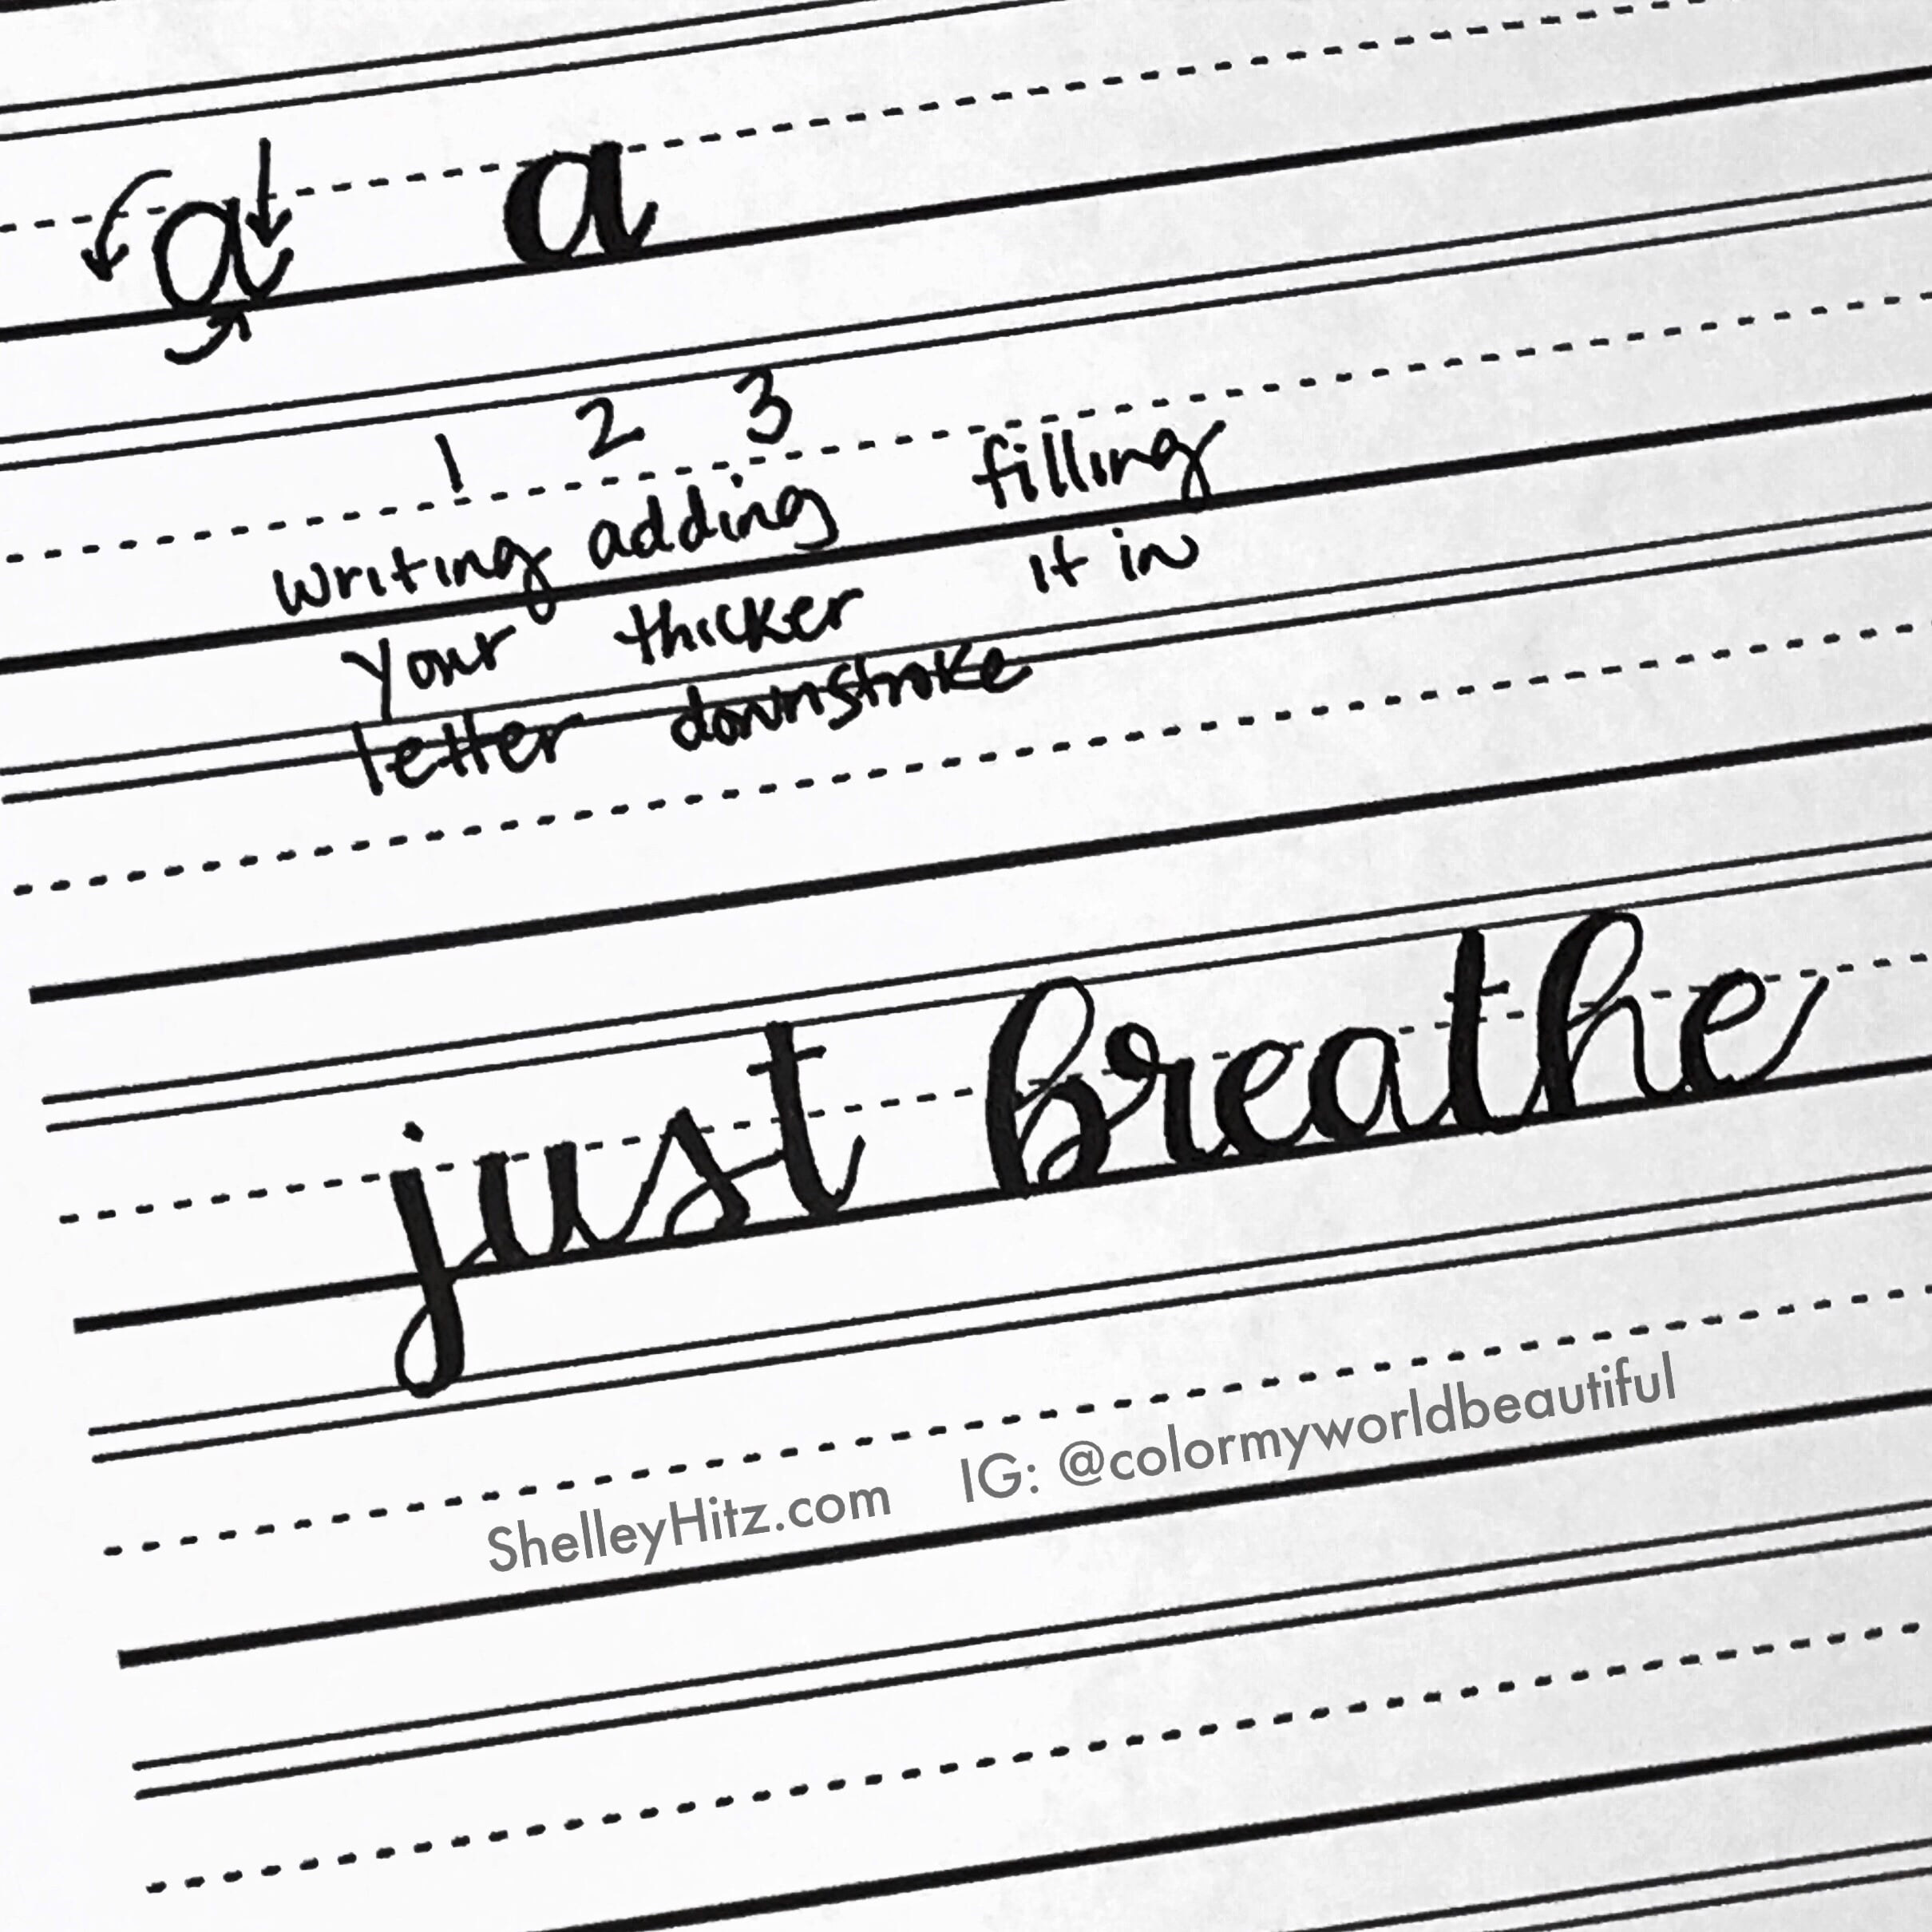 a a
1 2 3
writing adding filling
your thicker it in
letter downstroke
just breathe
ShelleyHitz.com IG: @colormyworldbeautiful